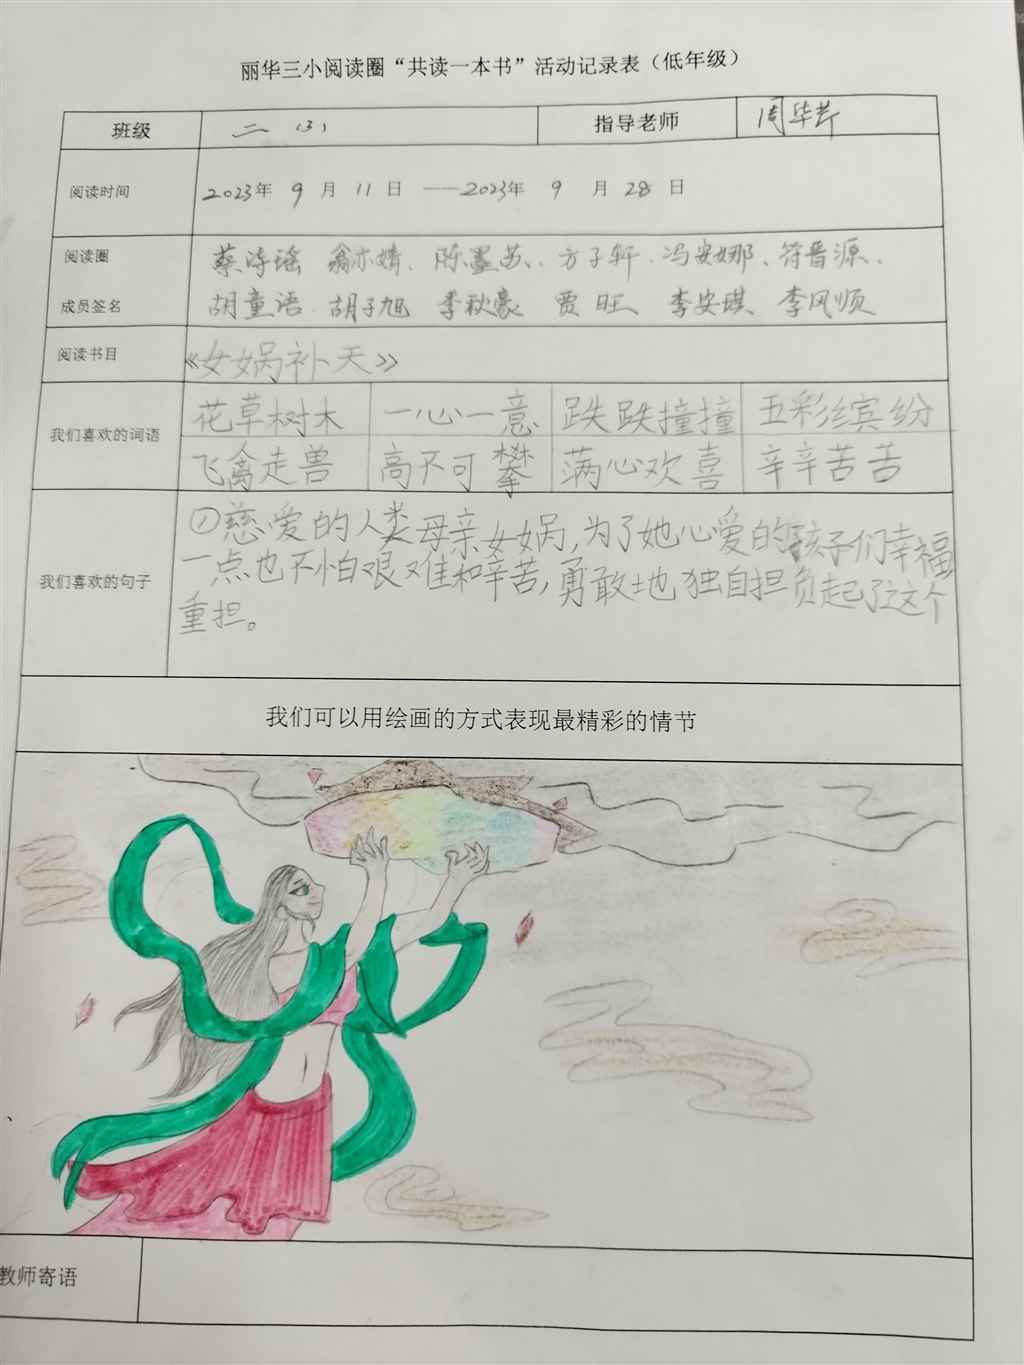 丽华三小阅读圈“共读一本书”活动记录表（低年级）
班级 二（3） 指导老师 周华芹
阅读时间 2023年 9 月 11 日 ——2023年 9 月 28 日
阅读圈 蔡诗瑶 翁亦婧、陈墨苏、方子轩、冯安娜、符晋源、
成员签名 胡童语、胡子旭 季秋豪 贾旺 李安琪 李风顺
阅读书目 《女娲补天》
我们喜欢的词语 花草树木 一心一意 跌跌撞撞 五彩缤纷
飞禽走兽 高不可攀 满心欢喜 辛辛苦苦
我们喜欢的句子 ①慈爱的人类母亲女娲,为了她心爱的孩子们幸福
一点也不怕艰难和辛苦,勇敢地独自担负起了这个
重担。
我们可以用绘画的方式表现最精彩的情节
教师寄语